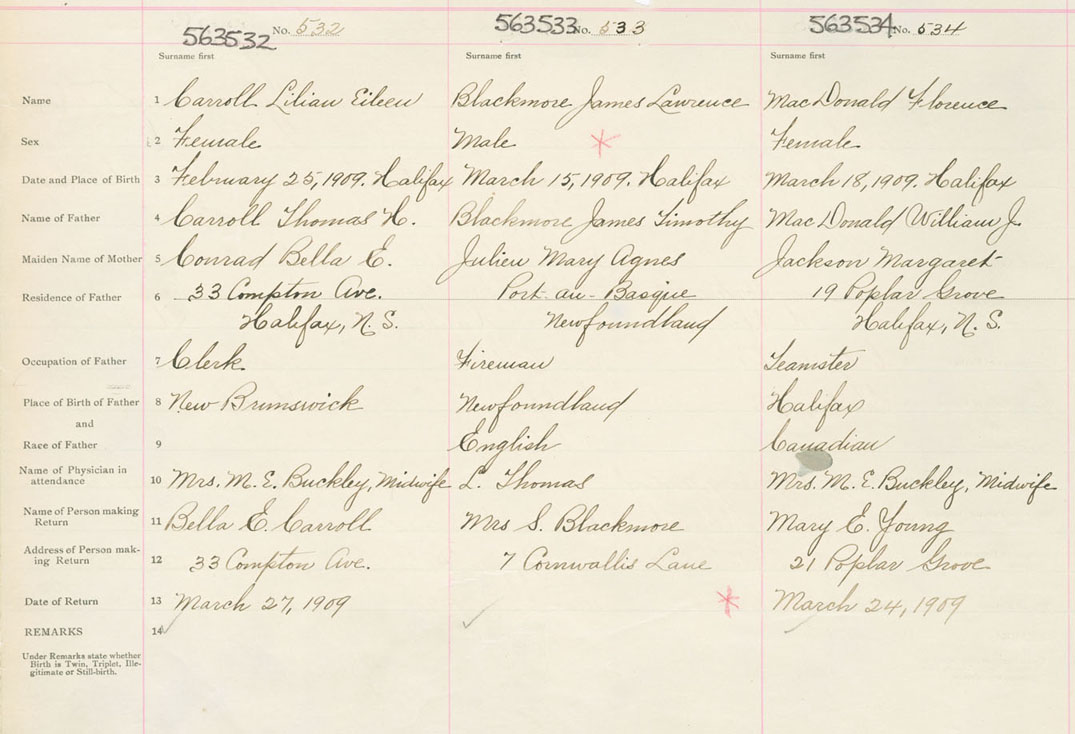 563532 No. 532 563533 No. 533 563534 No. 534
Surname first Surname first Surname first
Name 1 Carroll Lilian Eileen Blackmore James Lawrence MacDonald Florence
Sex 2 Female Male Female
Date and Place of Birth 3 February 25, 1909. Halifax March 15, 1909. Halifax March 18, 1909. Halifax
Name of Father 4 Carroll Thomas H. Blackmore James Timothy MacDonald William J.
Maiden Name of Mother 5 Conrad Bella E. Julien Mary Agnes Jackson Margaret
Residence of Father 6 33 Compton Ave. Port-au-Basque 19 Poplar Grove
Halifax, N. S. Newfoundland Halifax, N. S.
Occupation of Father 7 Clerk Fireman Teamster
Place of Birth of Father 8 New Brunswick Newfoundland Halifax
and
Race of Father 9 English Canadian
Name of Physician in
attendance 10 Mrs. M. E. Buckley, Midwife L. Thomas Mrs. M. E. Buckley, Midwife
Name of Person making
Return 11 Bella E. Carroll Mrs S. Blackmore Mary E. Young
Address of Person mak-
ing Return 12 33 Compton Ave. 7 Cornwallis Lane 21 Poplar Grove
Date of Return 13 March 27, 1909 March 24, 1909
REMARKS 14
Under Remarks state whether
Birth is Twin, Triplet, Ille-
gitimate or Still-birth.